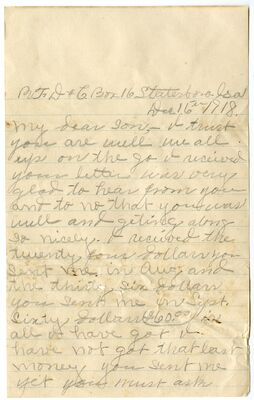 R. F. D # 6 Box 16 Statesboro, Ga
Dec 16th 1918.
My dear Son,— I trust
you are well we all
ups on the go I recieved
your letter was very
glad to hear from you
and to no that you was
well and geting along
so nicely. I recieved the
twenty four dollars you
sent me in Aug and
the thirty six dollars
you sent me in Sept.
Sixty dollars $60.00
all I have got I
have not got that last
money you sent me
yet you must ask